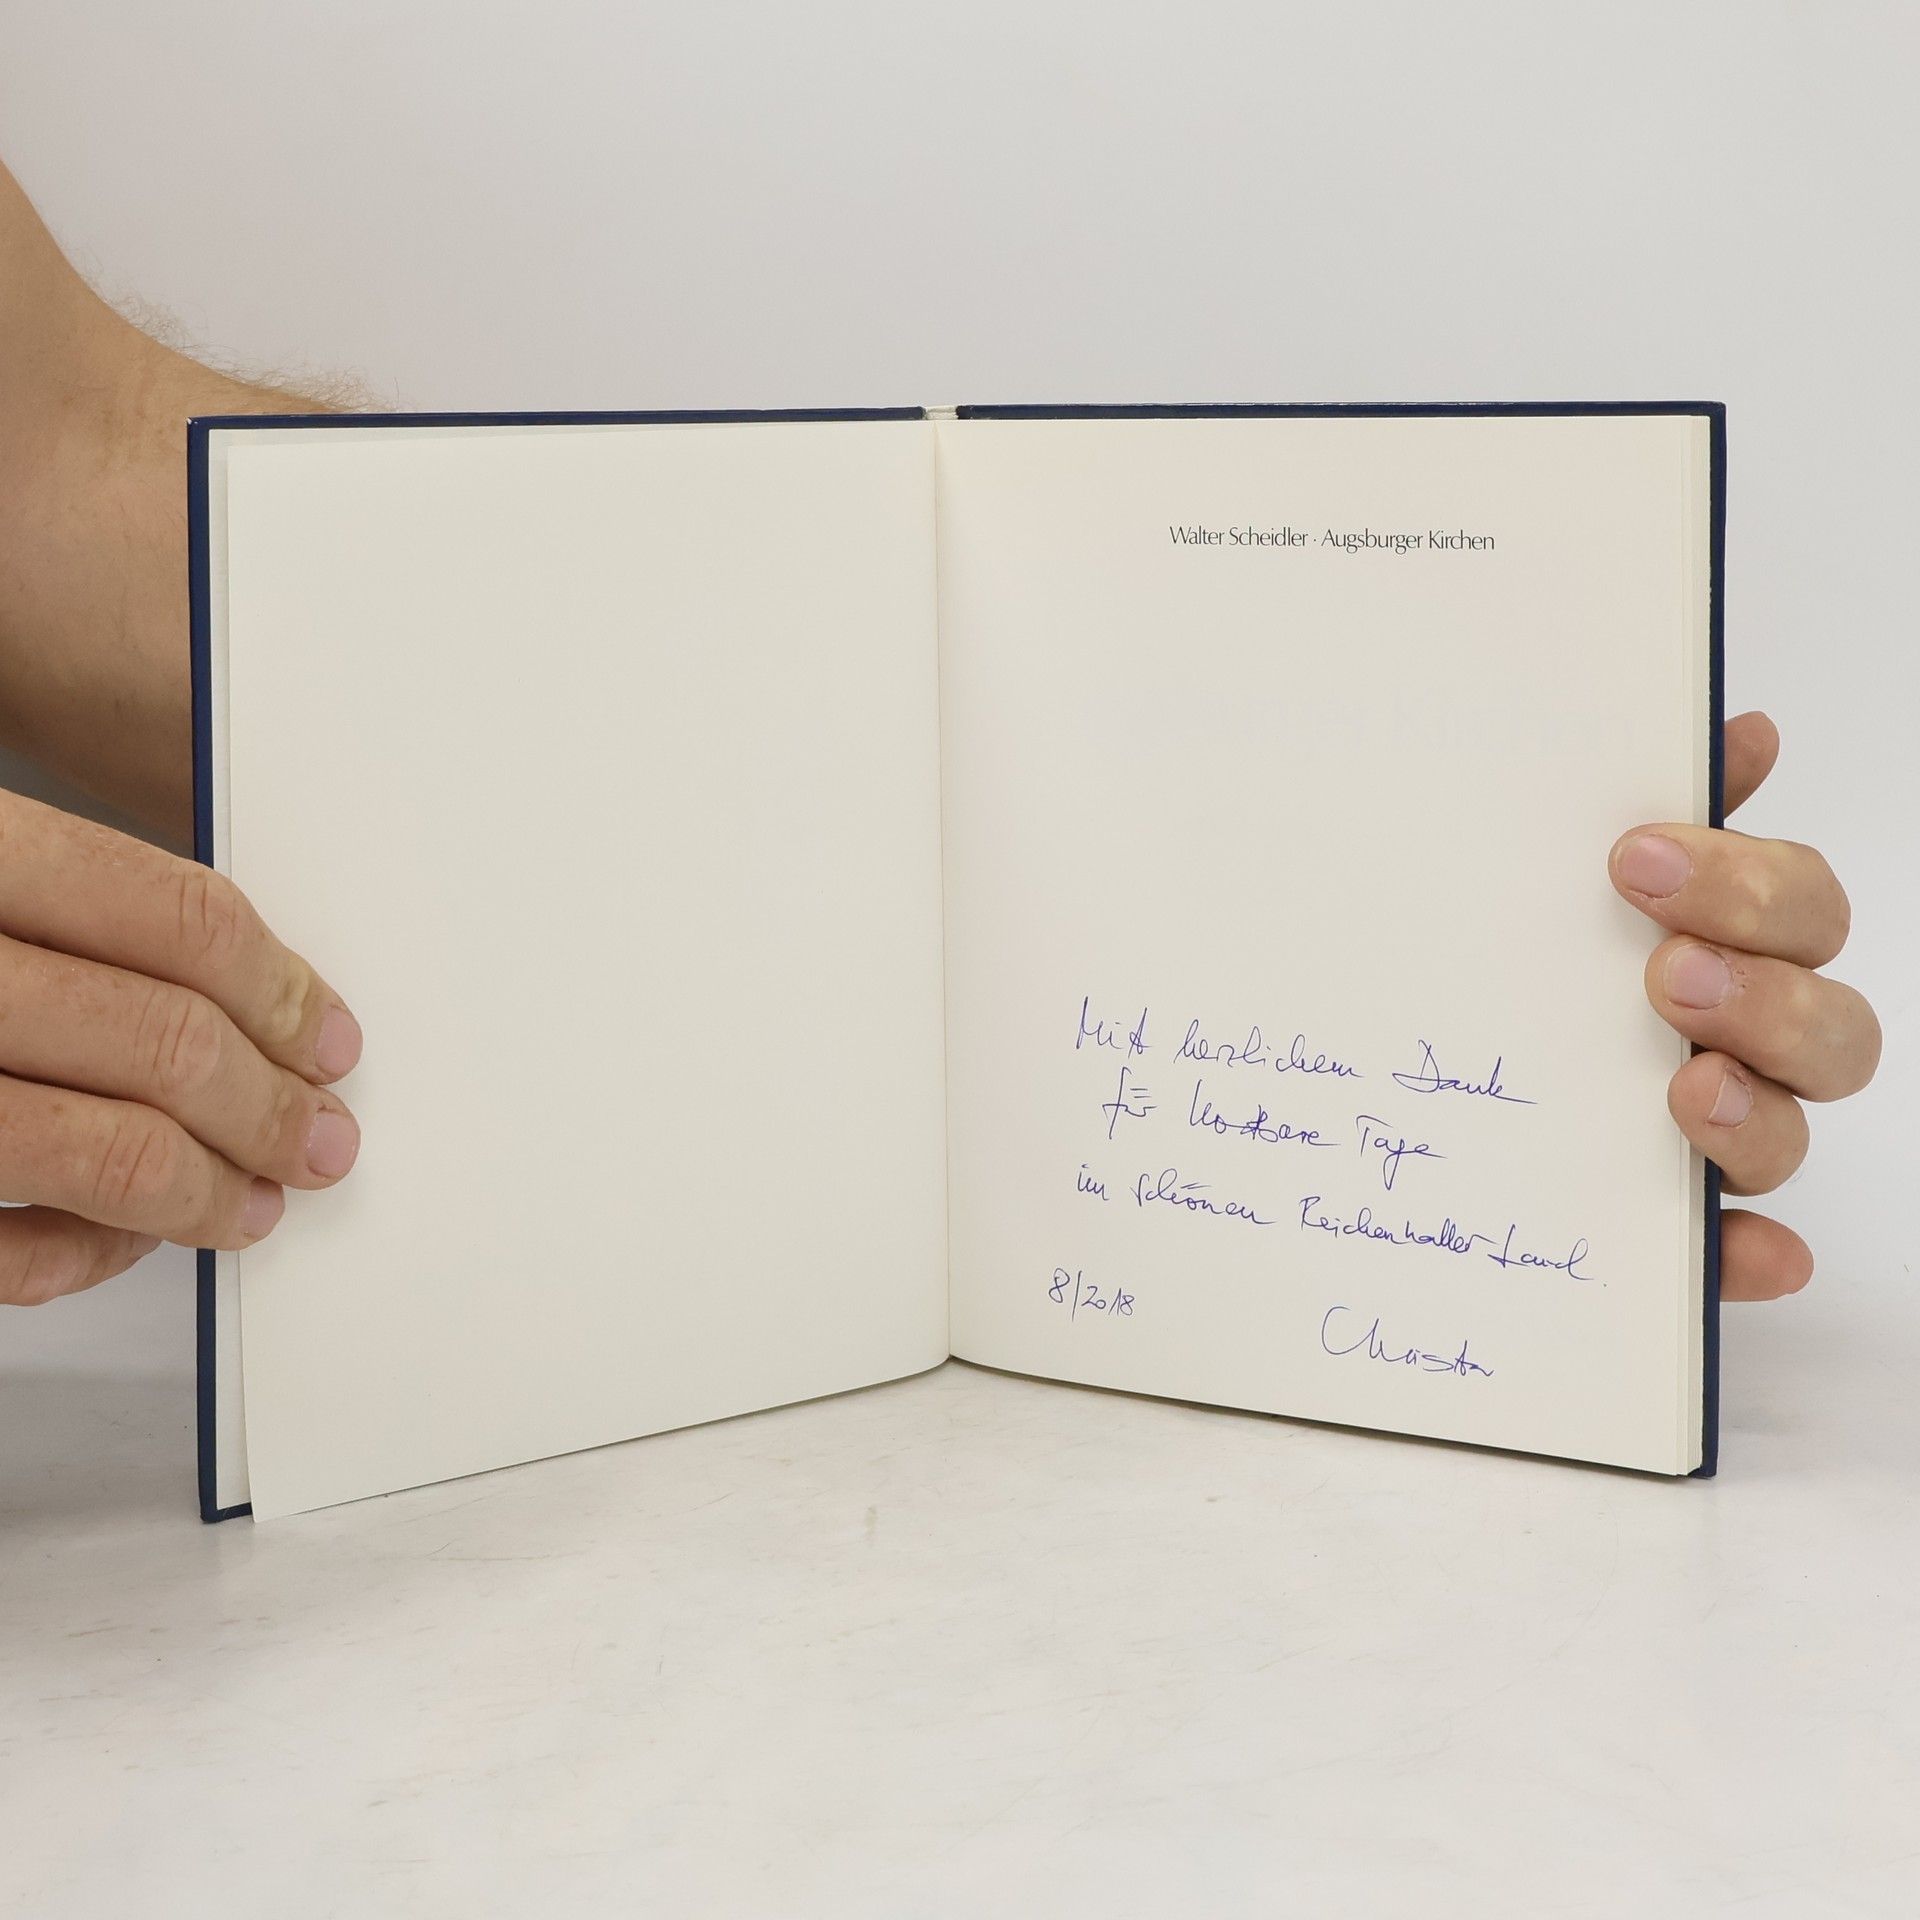 Walter Scheidler · Augsburger Kirchen
Mit herzlichem Dank
für kostbare Tage
im schönen Reichenhaller-Land.
8/2018
Christa